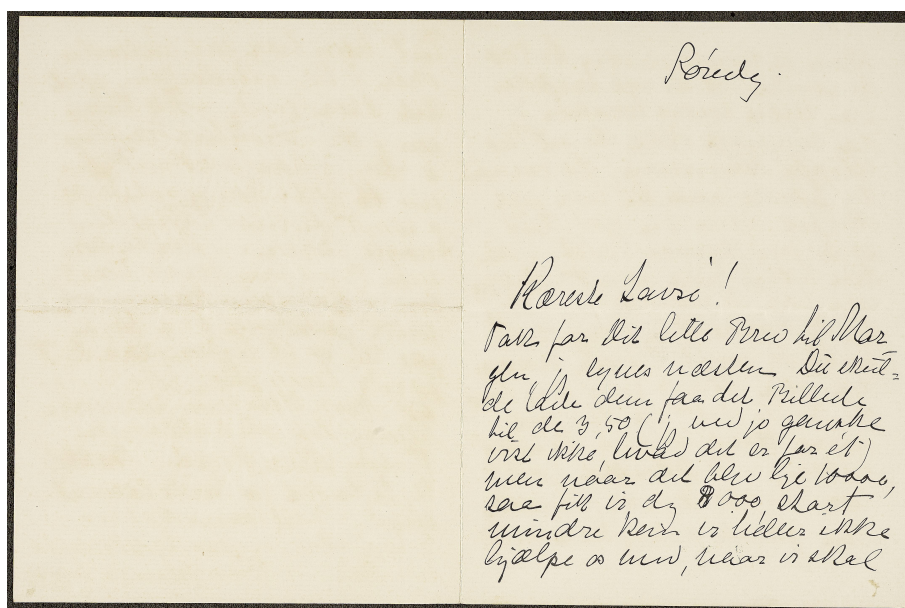 Kæreste Lavsé!
Tak for Dit lille Brev til Mor
j, synes næsten Du skul=
de lade dem faa det Billede
til de 3,50 (j, ved jo ganske
vist ikke, hvad det er for ét)
men naar det blev 10000,
saa fik vi 8000, stort
mindre kan vi heller ikke
hjælpe os med, naar vi skal